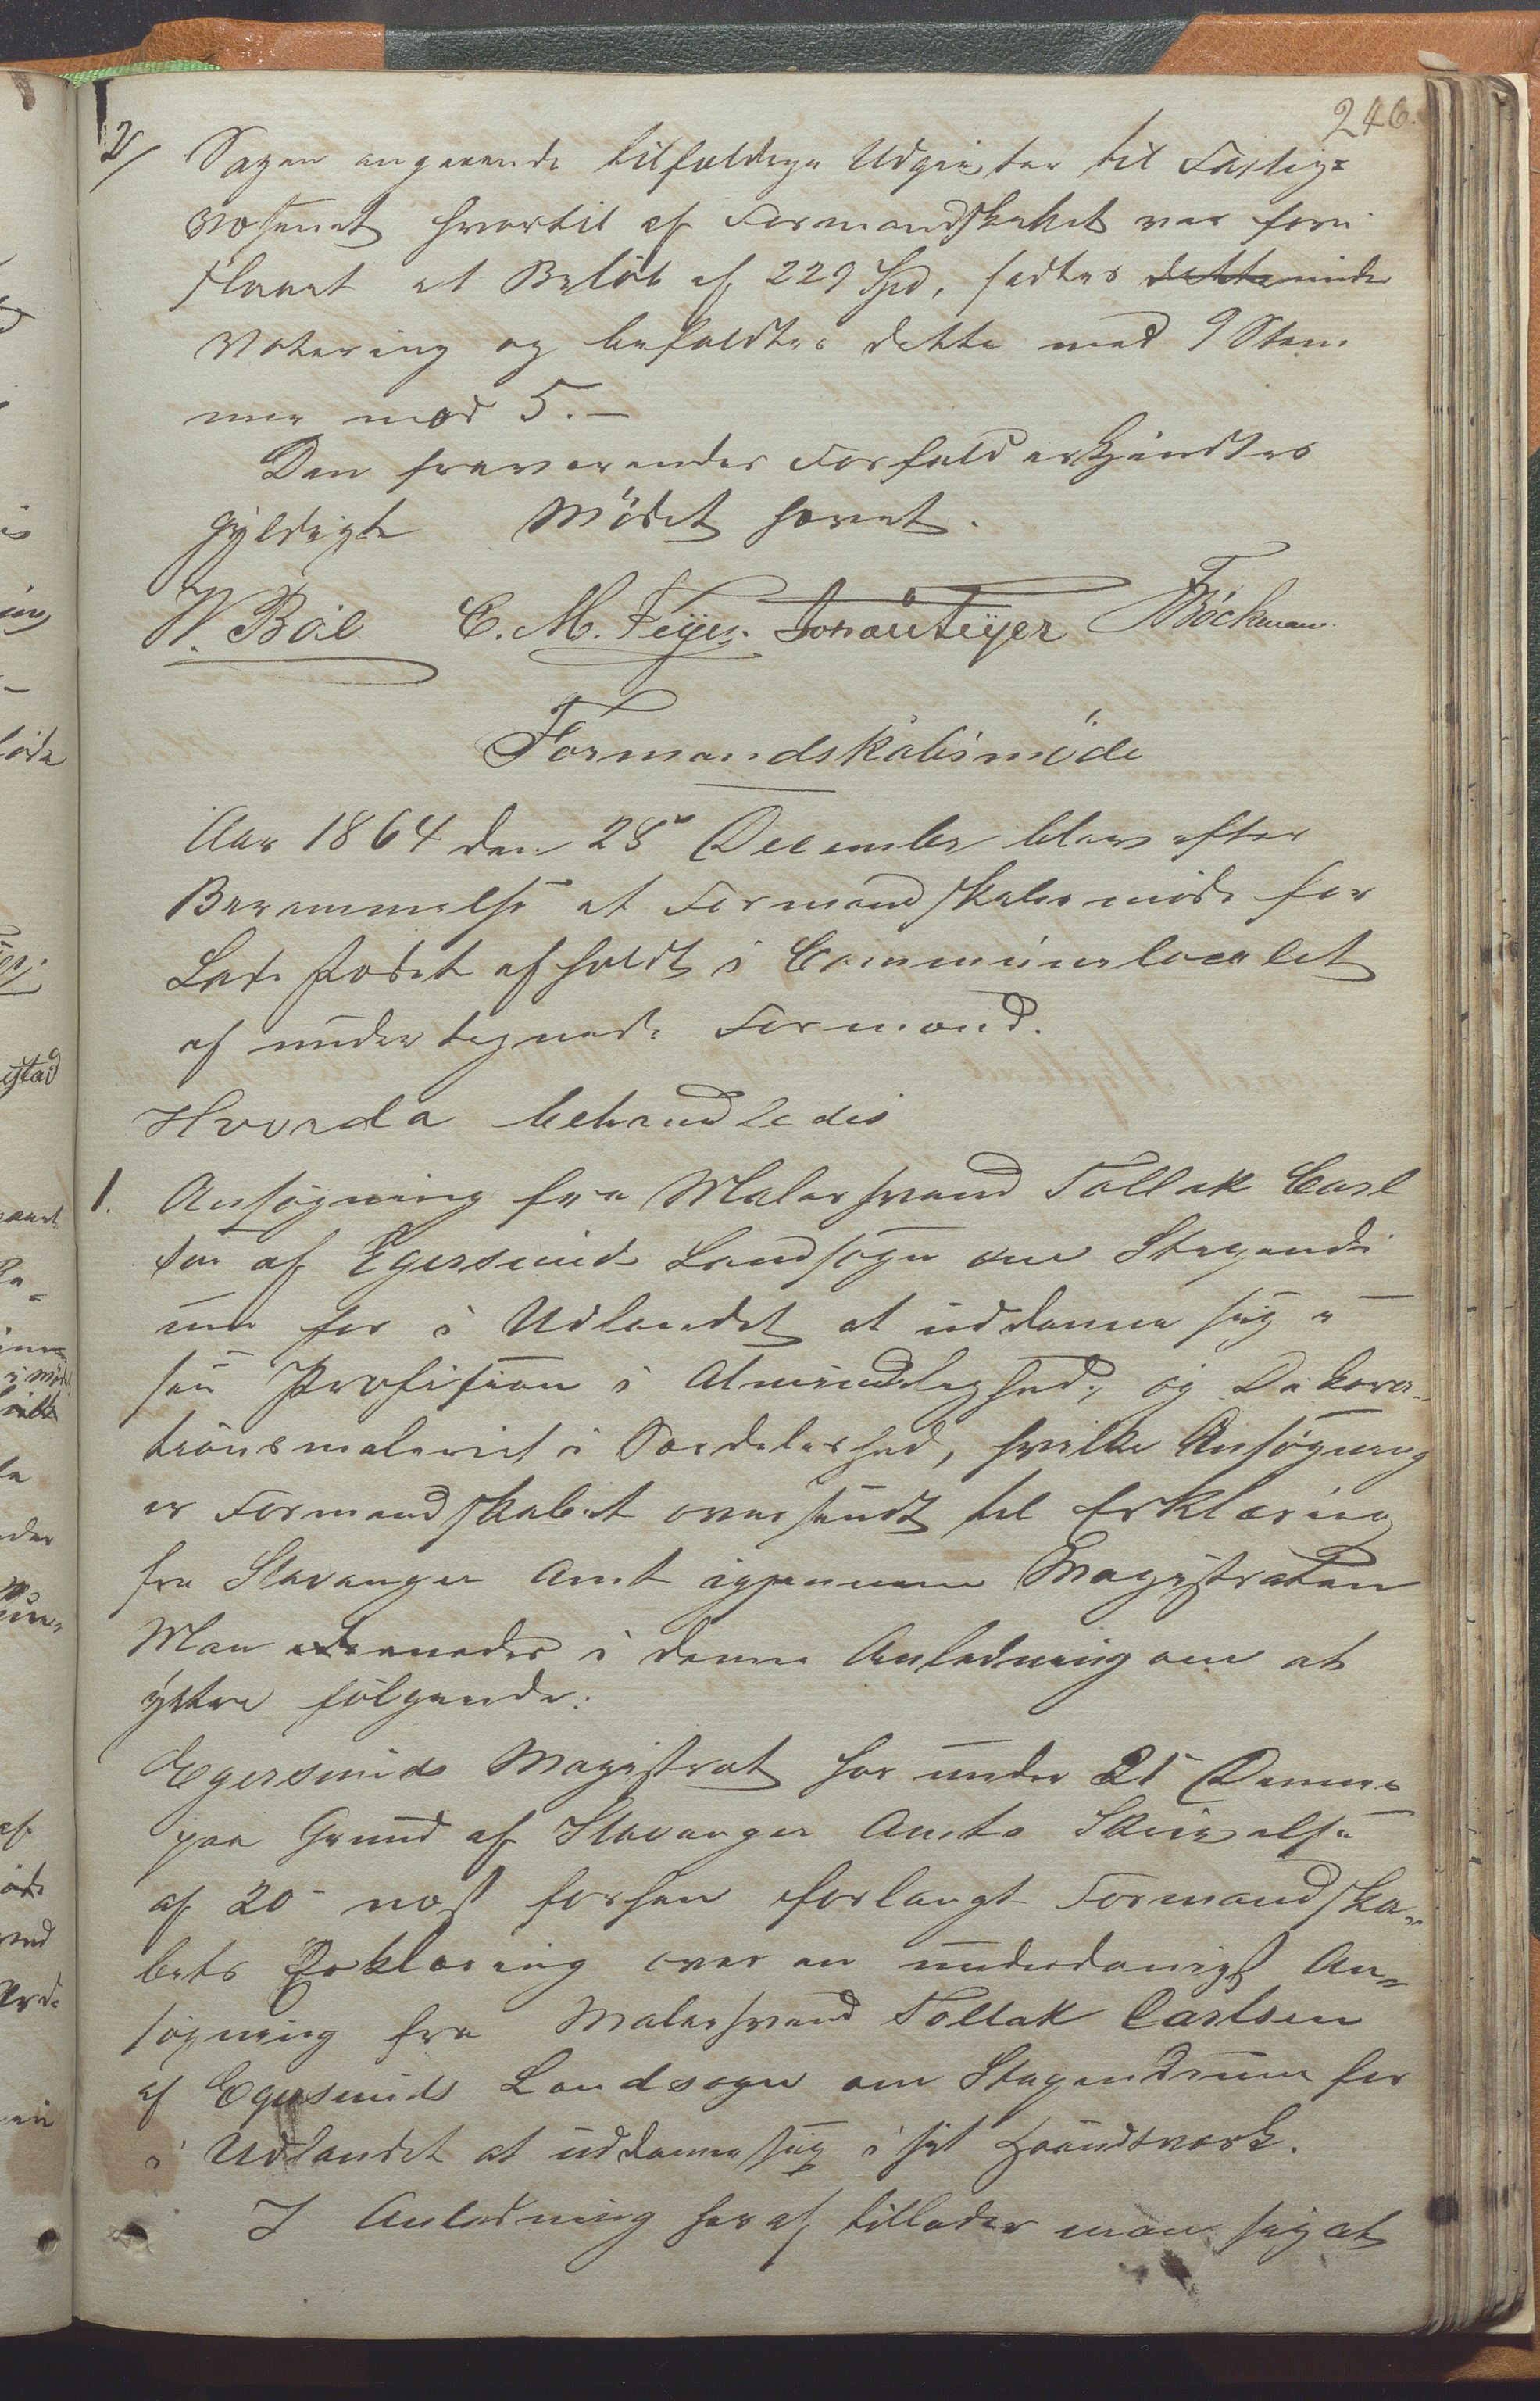 246.
2/ Sagen angaaende tilfældige Udgifter til Fattig=
væsenet hvortil af Formandskabet var fore
slaaet et Beløb af 229 Spd, sattes dette under
Votering og befaldtes dette med 9 Stem
mer mod 5.-
Den fraværendes Forfald erkjendtes
gyldigt Mödet hævet.
W. Böe C. M. Feyer. Jonas Feyer F Böckman
Formandskabsmöde
Aar 1864 den 28de December blev efter
Berammelse et Formandskabsmöde for
Ladestedet afholdt i Communelocalet
af undertegnede Formænd.
Hvorda behandledes
1. Ansögning fra Malersvend Tollak Carl
sen af Egersunds Landsogn om Stipendi
um for i Udlandet at uddanne sig i
sin Profession i Almindelighed, og Dekora-
tionsmaleriet i Særdeleshed, hvilke Ansögning
er Formandskabet oversendt til Erklæring
fra Stavanger Amt igjennem Magistraten
Man enedes i denne Anledning om at
yttre fölgende:
Egersunds Magistrat har under 21 Dennes
paa Grund af Stavanger Amts Skrivelse
af 20 næst forhen forlangt Formandska-
bets Erklæring over en underdanigst An-
søgning fra Malersvend Tollak Carlsen
af Egersunds Landsogn om Stipendium for
i Udlandet at uddanne sig i sit Haandværk.
I Anledning heraf tillader man sig at